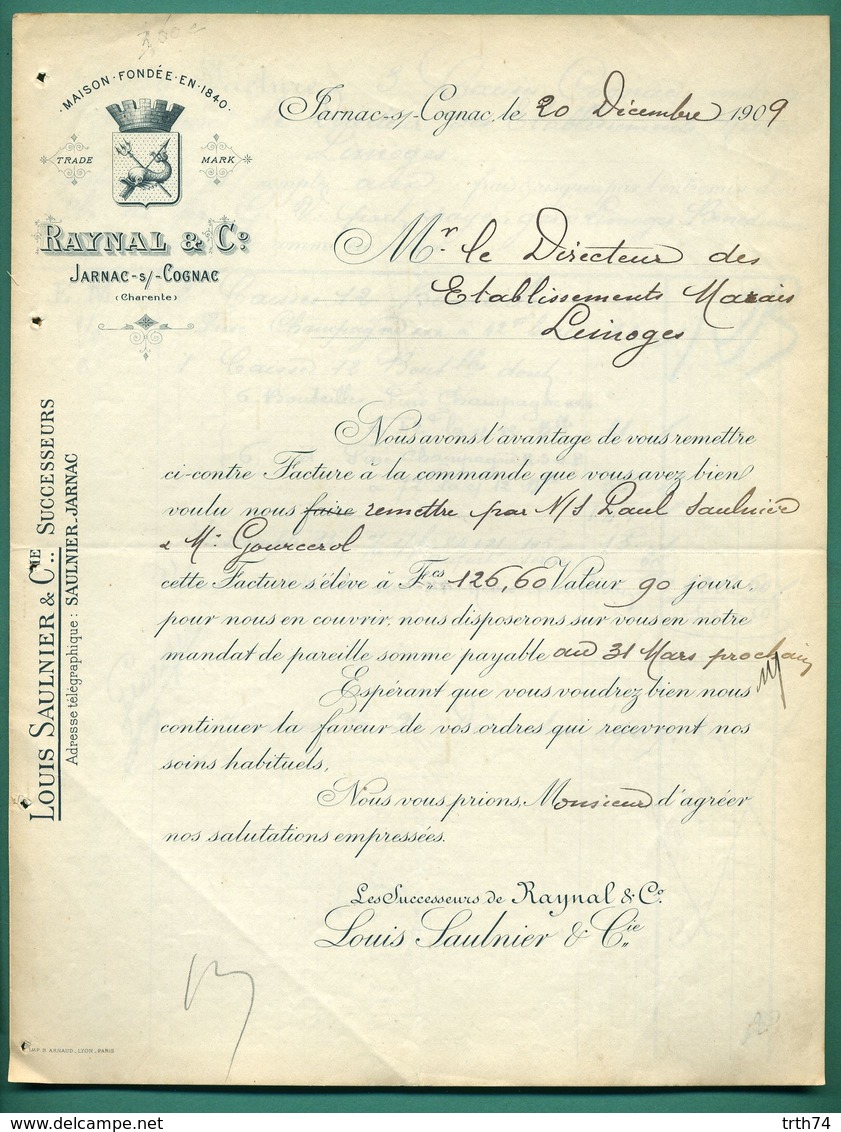 MAISON·FONDÉE·EN·1840
TRADE MARK
RAYNAL & Cº.
JARNAC-s/-COGNAC
(Charente)
LOUIS SAULNIER & CIE. SUCCESSEURS
Adresse télégraphique: SAULNIER-JARNAC
Jarnac-s/-Cognac, le 20 Décembre 1909
Mr. le Directeur des
Etablissements Marais
Limoges
Nous avons l'avantage de vous remettre
ci-contre Facture à la commande que vous avez bien
voulu nous faire remettre par N/S Paul Saulnier
& Mr. Gourcerol
cette Facture s'élève à Fcs 126,60 Valeur 90 jours,
pour nous en couvrir, nous disposerons sur vous en notre
mandat de pareille somme payable au 31 Mars prochain
Espérant que vous voudrez bien nous
continuer la faveur de vos ordres qui recevront nos
soins habituels,
Nous vous prions, Monsieur d'agréer
nos salutations empressées.
Les Successeurs de Raynal & Cº.
Louis Saulnier & Cie
IMP. B. ARNAUD_LYON_PARIS
delcampe.net
trth74